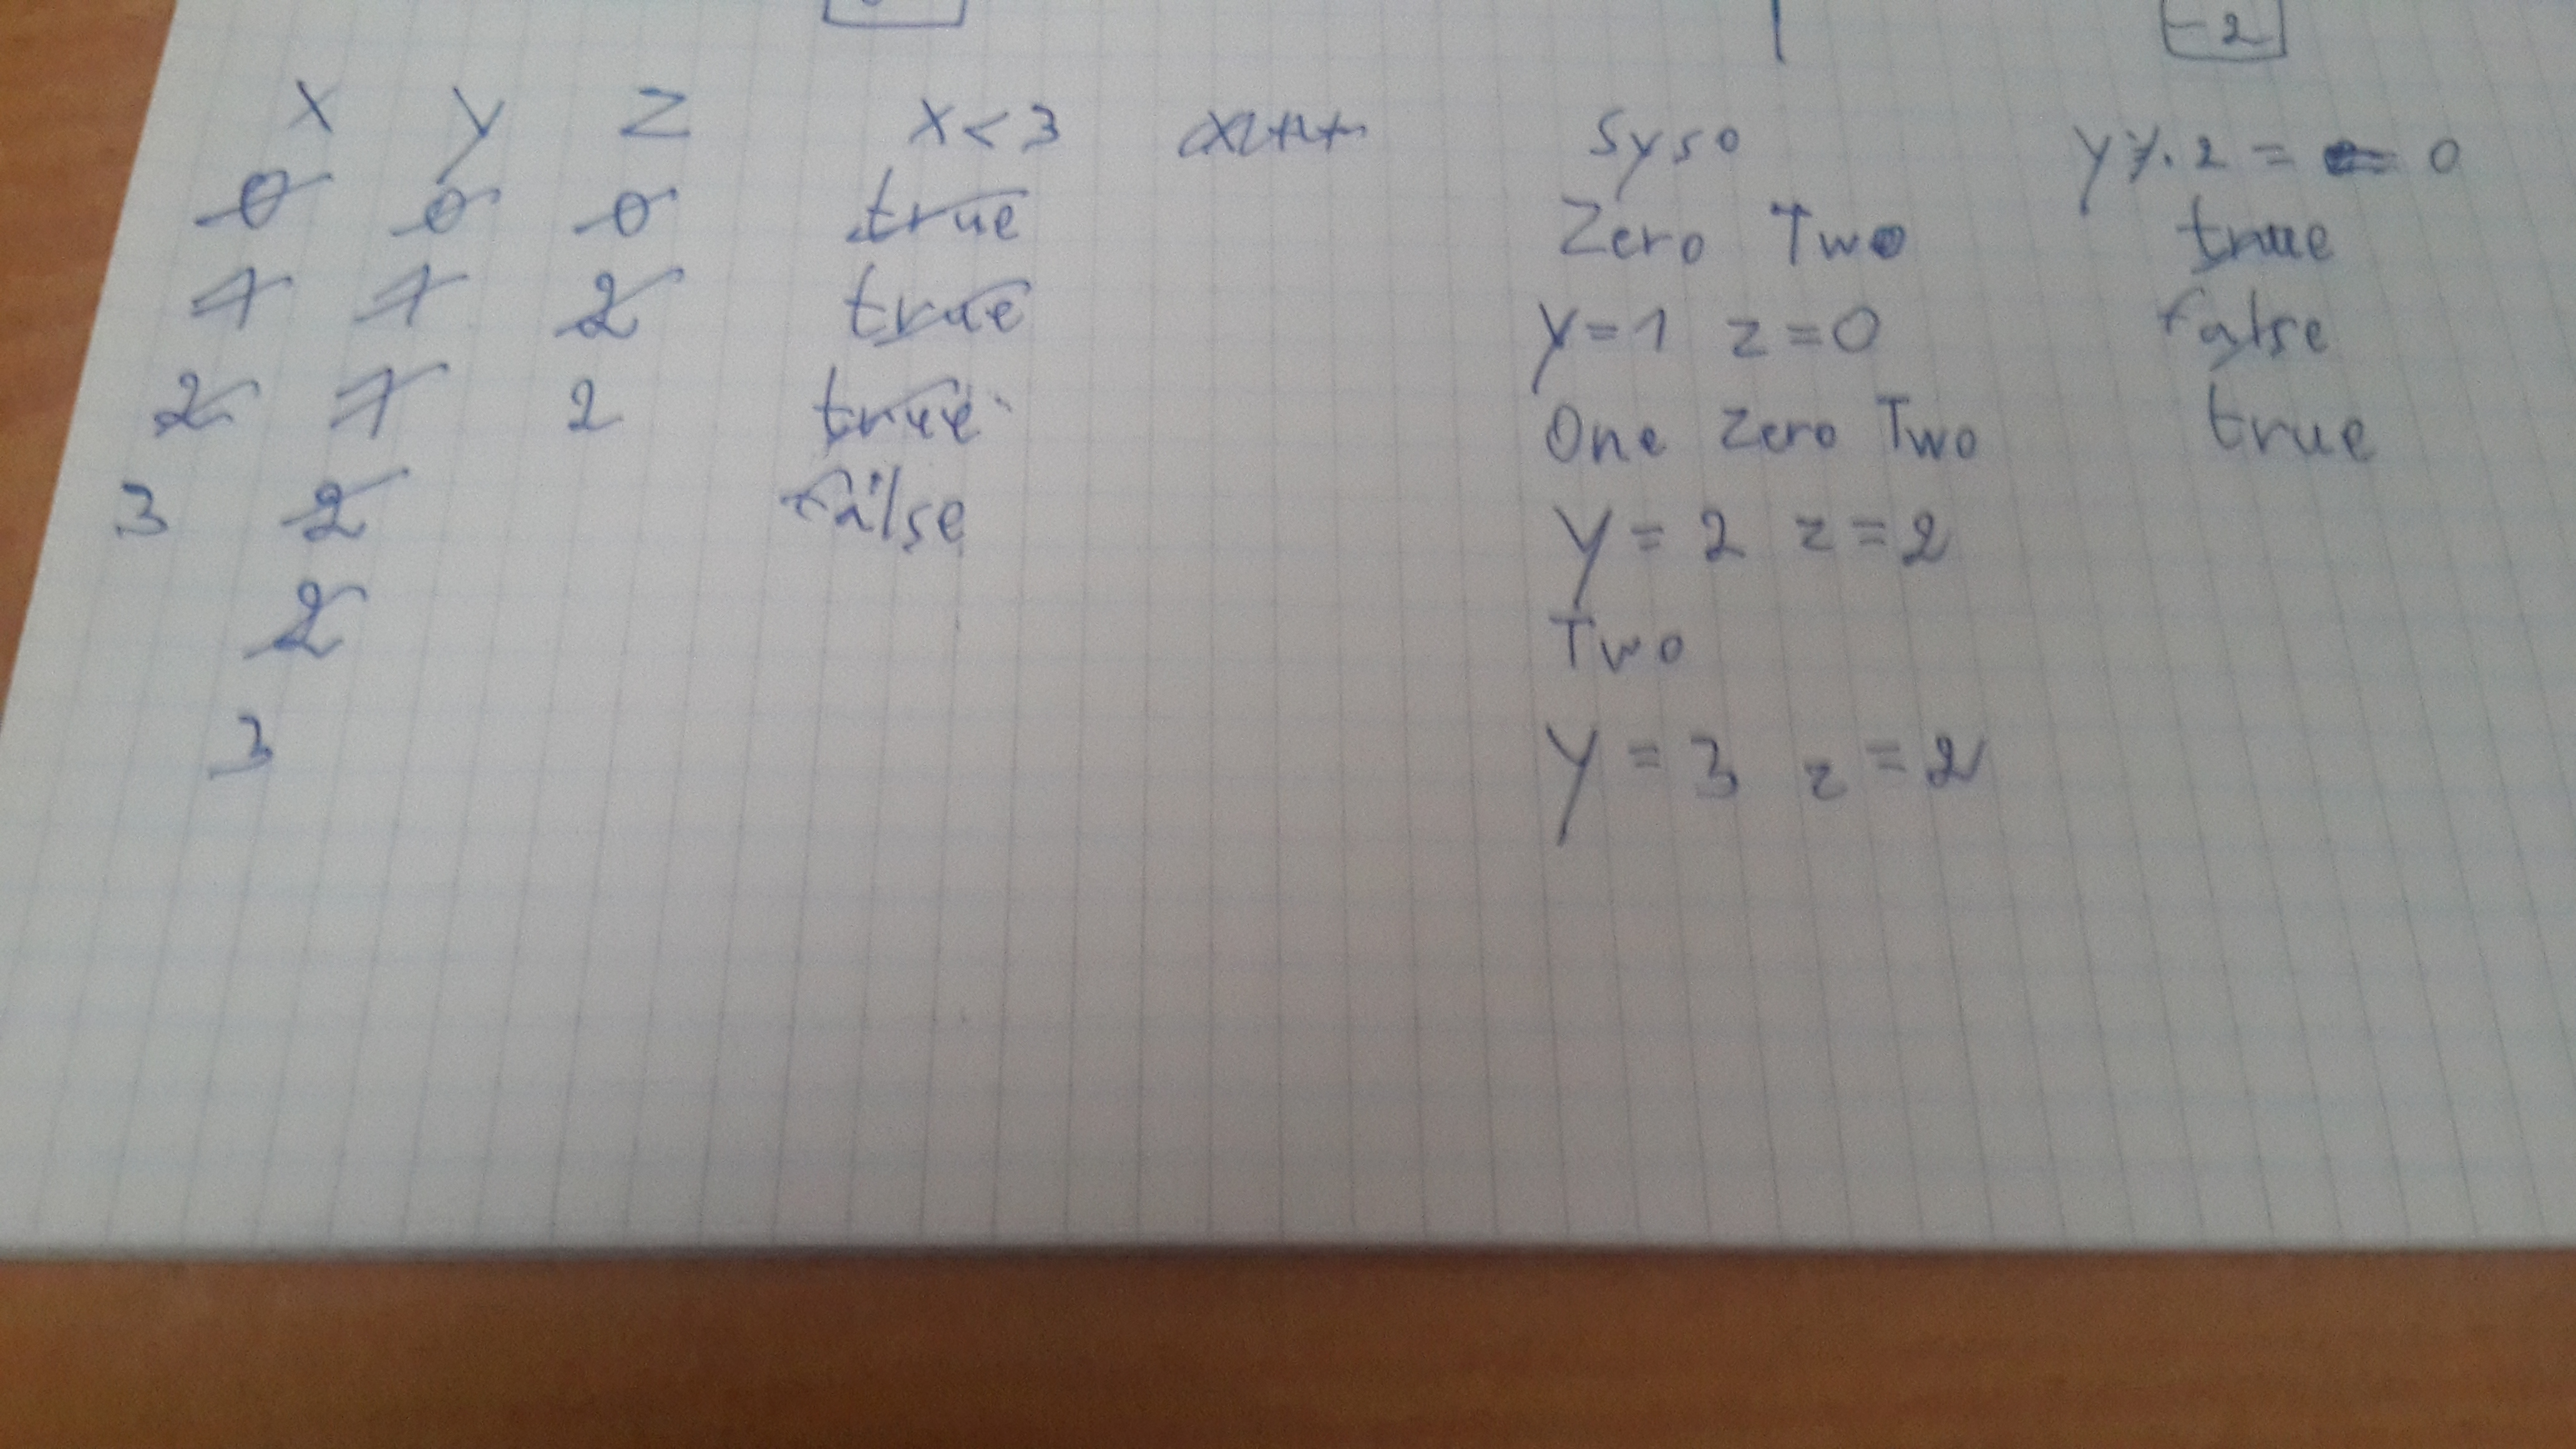 -2
x y z x<3 x++ Syso y%2 = 0
0 0 0 true Zero Two true
1 1 2 true y=1 z=0 false
2 1 2 true One Zero Two true
3 2 false y=2 z=2
2 Two
3 y=3 z=2